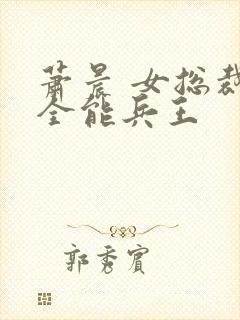 萧晨 女总裁
全能兵王
郭秀宾